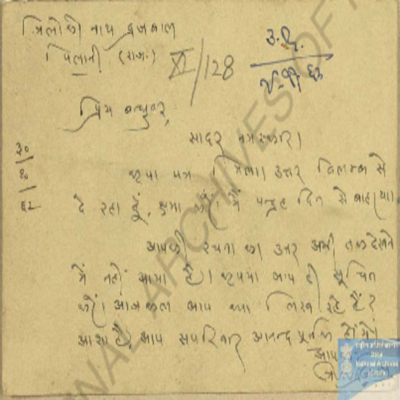 त्रिलोकी नाथ ब्रजवाल
पिलानी (राज.)
XI/128
उ. दि.
प्रिय बन्धुवर,
सादर नमस्कार।
३०
६२
कृपा पत्र मिला। उत्तर विलम्ब से
दे रहा हूँ, क्षमा करें। मैं पन्द्रह दिन से बाहर था।
आपकी रचना का उत्तर अभी तक देखने
में नहीं आया है। कृपया आप ही सूचित
करें। आजकल आप क्या लिख रहे हैं?
आशा है, आप सपरिवार आनन्द पूर्वक होंगे।
आपका
NATIONAL ARCHIVES OF